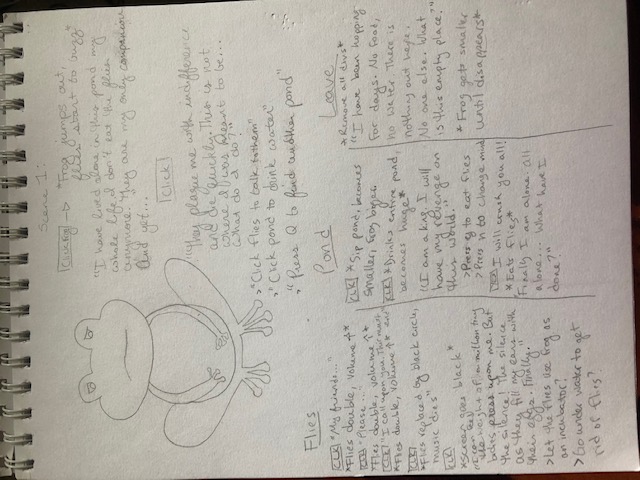 Scene 1:
Click Frog → *Frog jumps out,
flies start to buzz*
"I have lived alone in this pond my
whole life. I don't eat the flies
anymore. They are my only companion
And yet..."
Click
"They plague me with indifference
and die quickly. This is not
where I was meant to be...
what do I do?"
>"Click flies to talk to them"
>"Click pond to drink water"
>"Press Q to find another pond"
Flies
CLK "My friends..."
*Flies double, volume ↑*
CLK "Please..."
*Flies double, volume ↑*
CLK "I call upon you. This must
*Flies double, volume ↑* end"
CLK
*Flies replaced by black circle,
music dies*
CLK
*Screen goes black*
"I can feel
the weight of a million tiny
bodies press upon me. But
the silence! The silence
as they fill my ears with
their eggs. Finally."
> Let the flies use frog as
an incubator?
> Go under water to get
rid of flies?
Pond
CLK *Sip pond, becomes
smaller, frog bigger
CLK *Drinks entire pond,
becomes huge*
"I am a king. I will
have my revenge on
this world."
> Press y to eat flies
> Press n to change mind
I will crush you all!
*Eats flies*
Finally I am alone. all
alone... What have I
done?"
Leave
*Remove all divs*
"I have been hopping
for days. No food,
no water. There is
nothing out here.
No one else. What
is this empty place."
*Frog gets smaller
until disappears*